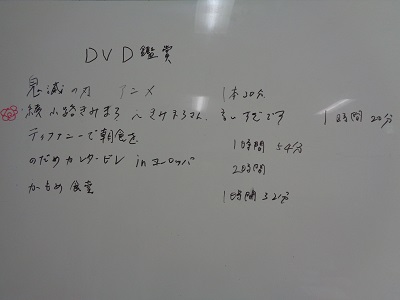 DVD鑑賞
鬼滅の刃 アニメ 1本20分
綾小路きみまろ きみまろさん、 1時間20分
ティファニーで朝食を 1時間54分
のだめカンタービレ in ヨーロッパ 2時間
かもめ食堂 1時間32分